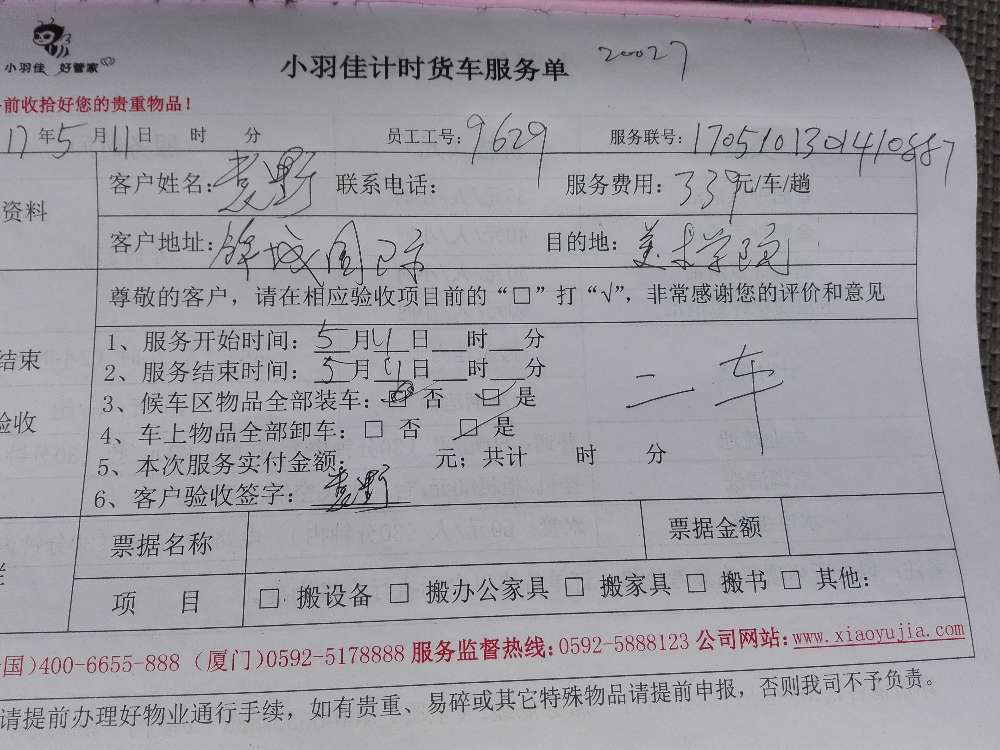 小羽佳 好管家
小羽佳计时货车服务单 20027
前收拾好您的贵重物品！
17年5月11日 时 分 员工工号：9629 服务联号：1705101301410887
资料
客户姓名： 联系电话： 服务费用：339元/车/趟
客户地址： 目的地：美术学院
尊敬的客户，请在相应验收项目前的“□”打“√”，非常感谢您的评价和意见
结束
验收
1、服务开始时间：5月11日__时__分
2、服务结束时间：5月11日__时__分
二车
3、候车区物品全部装车：□ 否 □ 是
4、车上物品全部卸车：□ 否 □ 是
5、本次服务实付金额： 元；共计 时 分
6、客户验收签字：
票据名称 票据金额
项 目 □ 搬设备 □ 搬办公家具 □ 搬家具 □ 搬书 □ 其他：
国)400-6655-888 (厦门)0592-5178888 服务监督热线：0592-5888123 公司网站：www.xiaoyujia.com
请提前办理好物业通行手续，如有贵重、易碎或其它特殊物品请提前申报，否则我司不予负责。